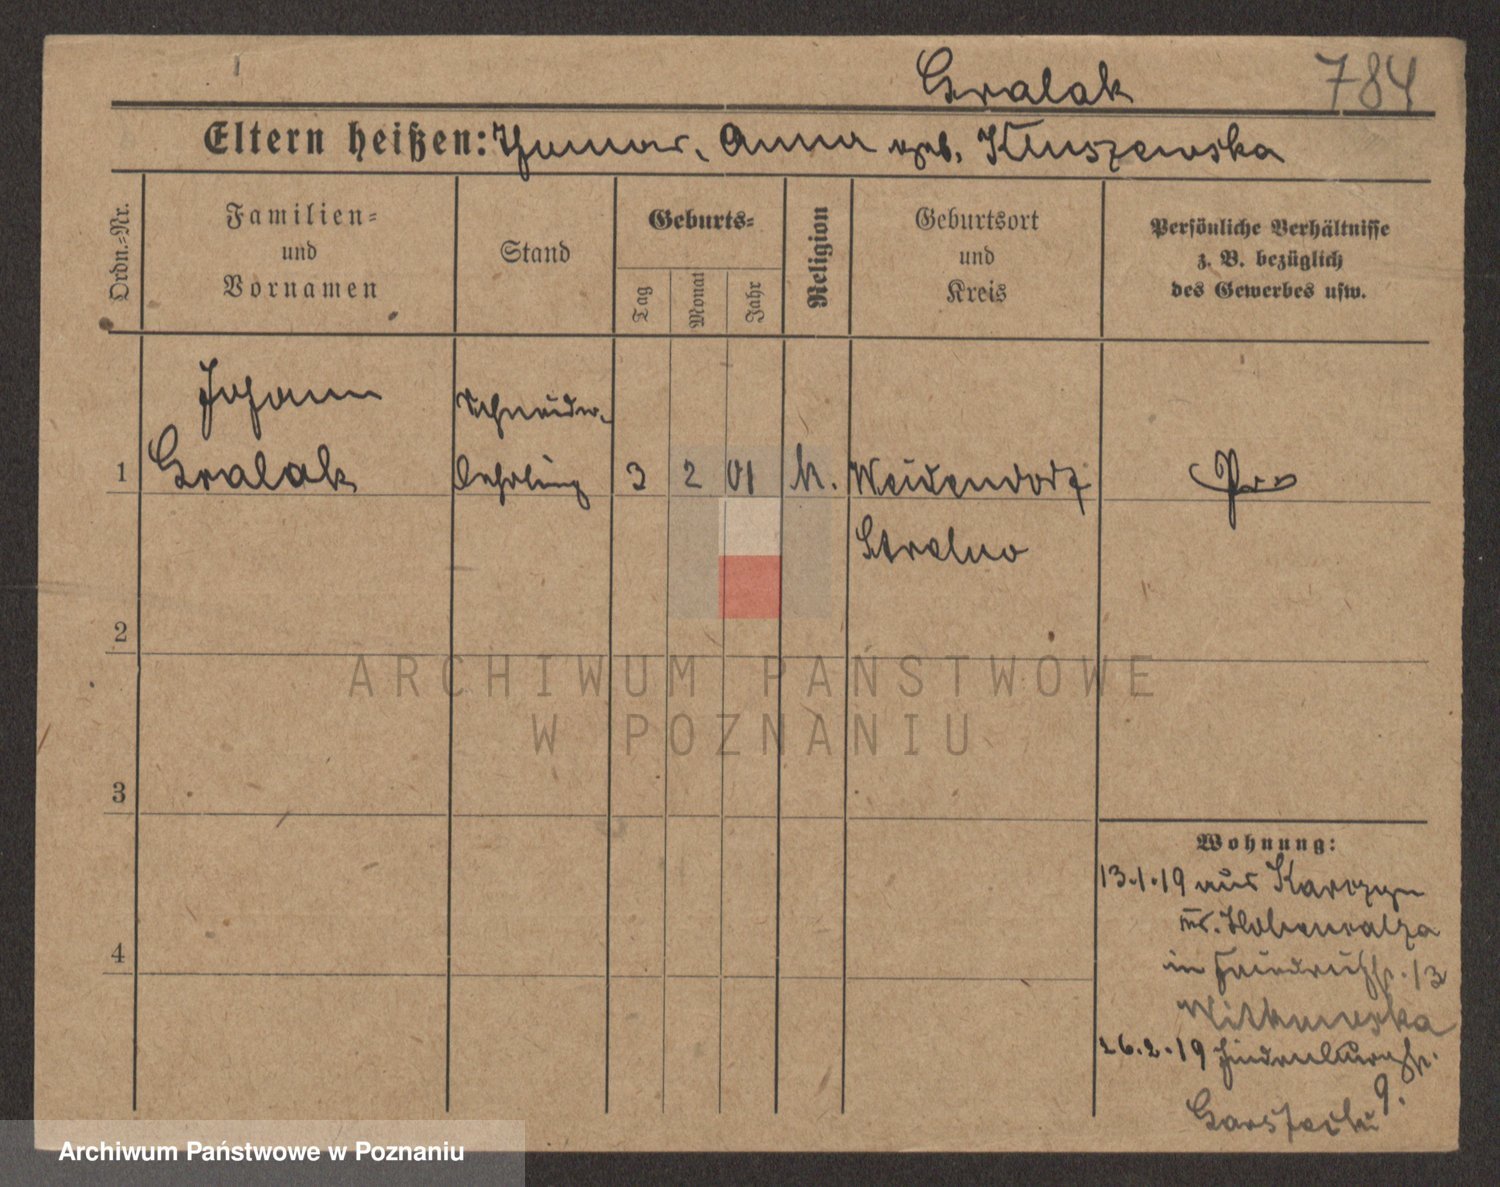 Gralak 784
Eltern heißen: Thomas, Anna geb. Kluszewska
Ordn.-Nr.
Familien-
und
Vornamen
Stand
Geburts-
Tag
Monat
Jahr
Religion
Geburtsort
und
Kreis
Persönliche Verhältnisse
z. B. bezüglich
des Gewerbes usw.
Johann
Schneider-
1 Gralak Lehrling 3 2 01 k. Weidendorf Pr
Strelno
2
ARCHIWUM PAŃSTWOWE
W POZNANIU
3
Wohnung:
13.1.19 aus
Hohensalza
4
in Friedrichstr. 13
Witkowska
26.2.19 Hindenburgstr.
9.
Archiwum Państwowe w Poznaniu